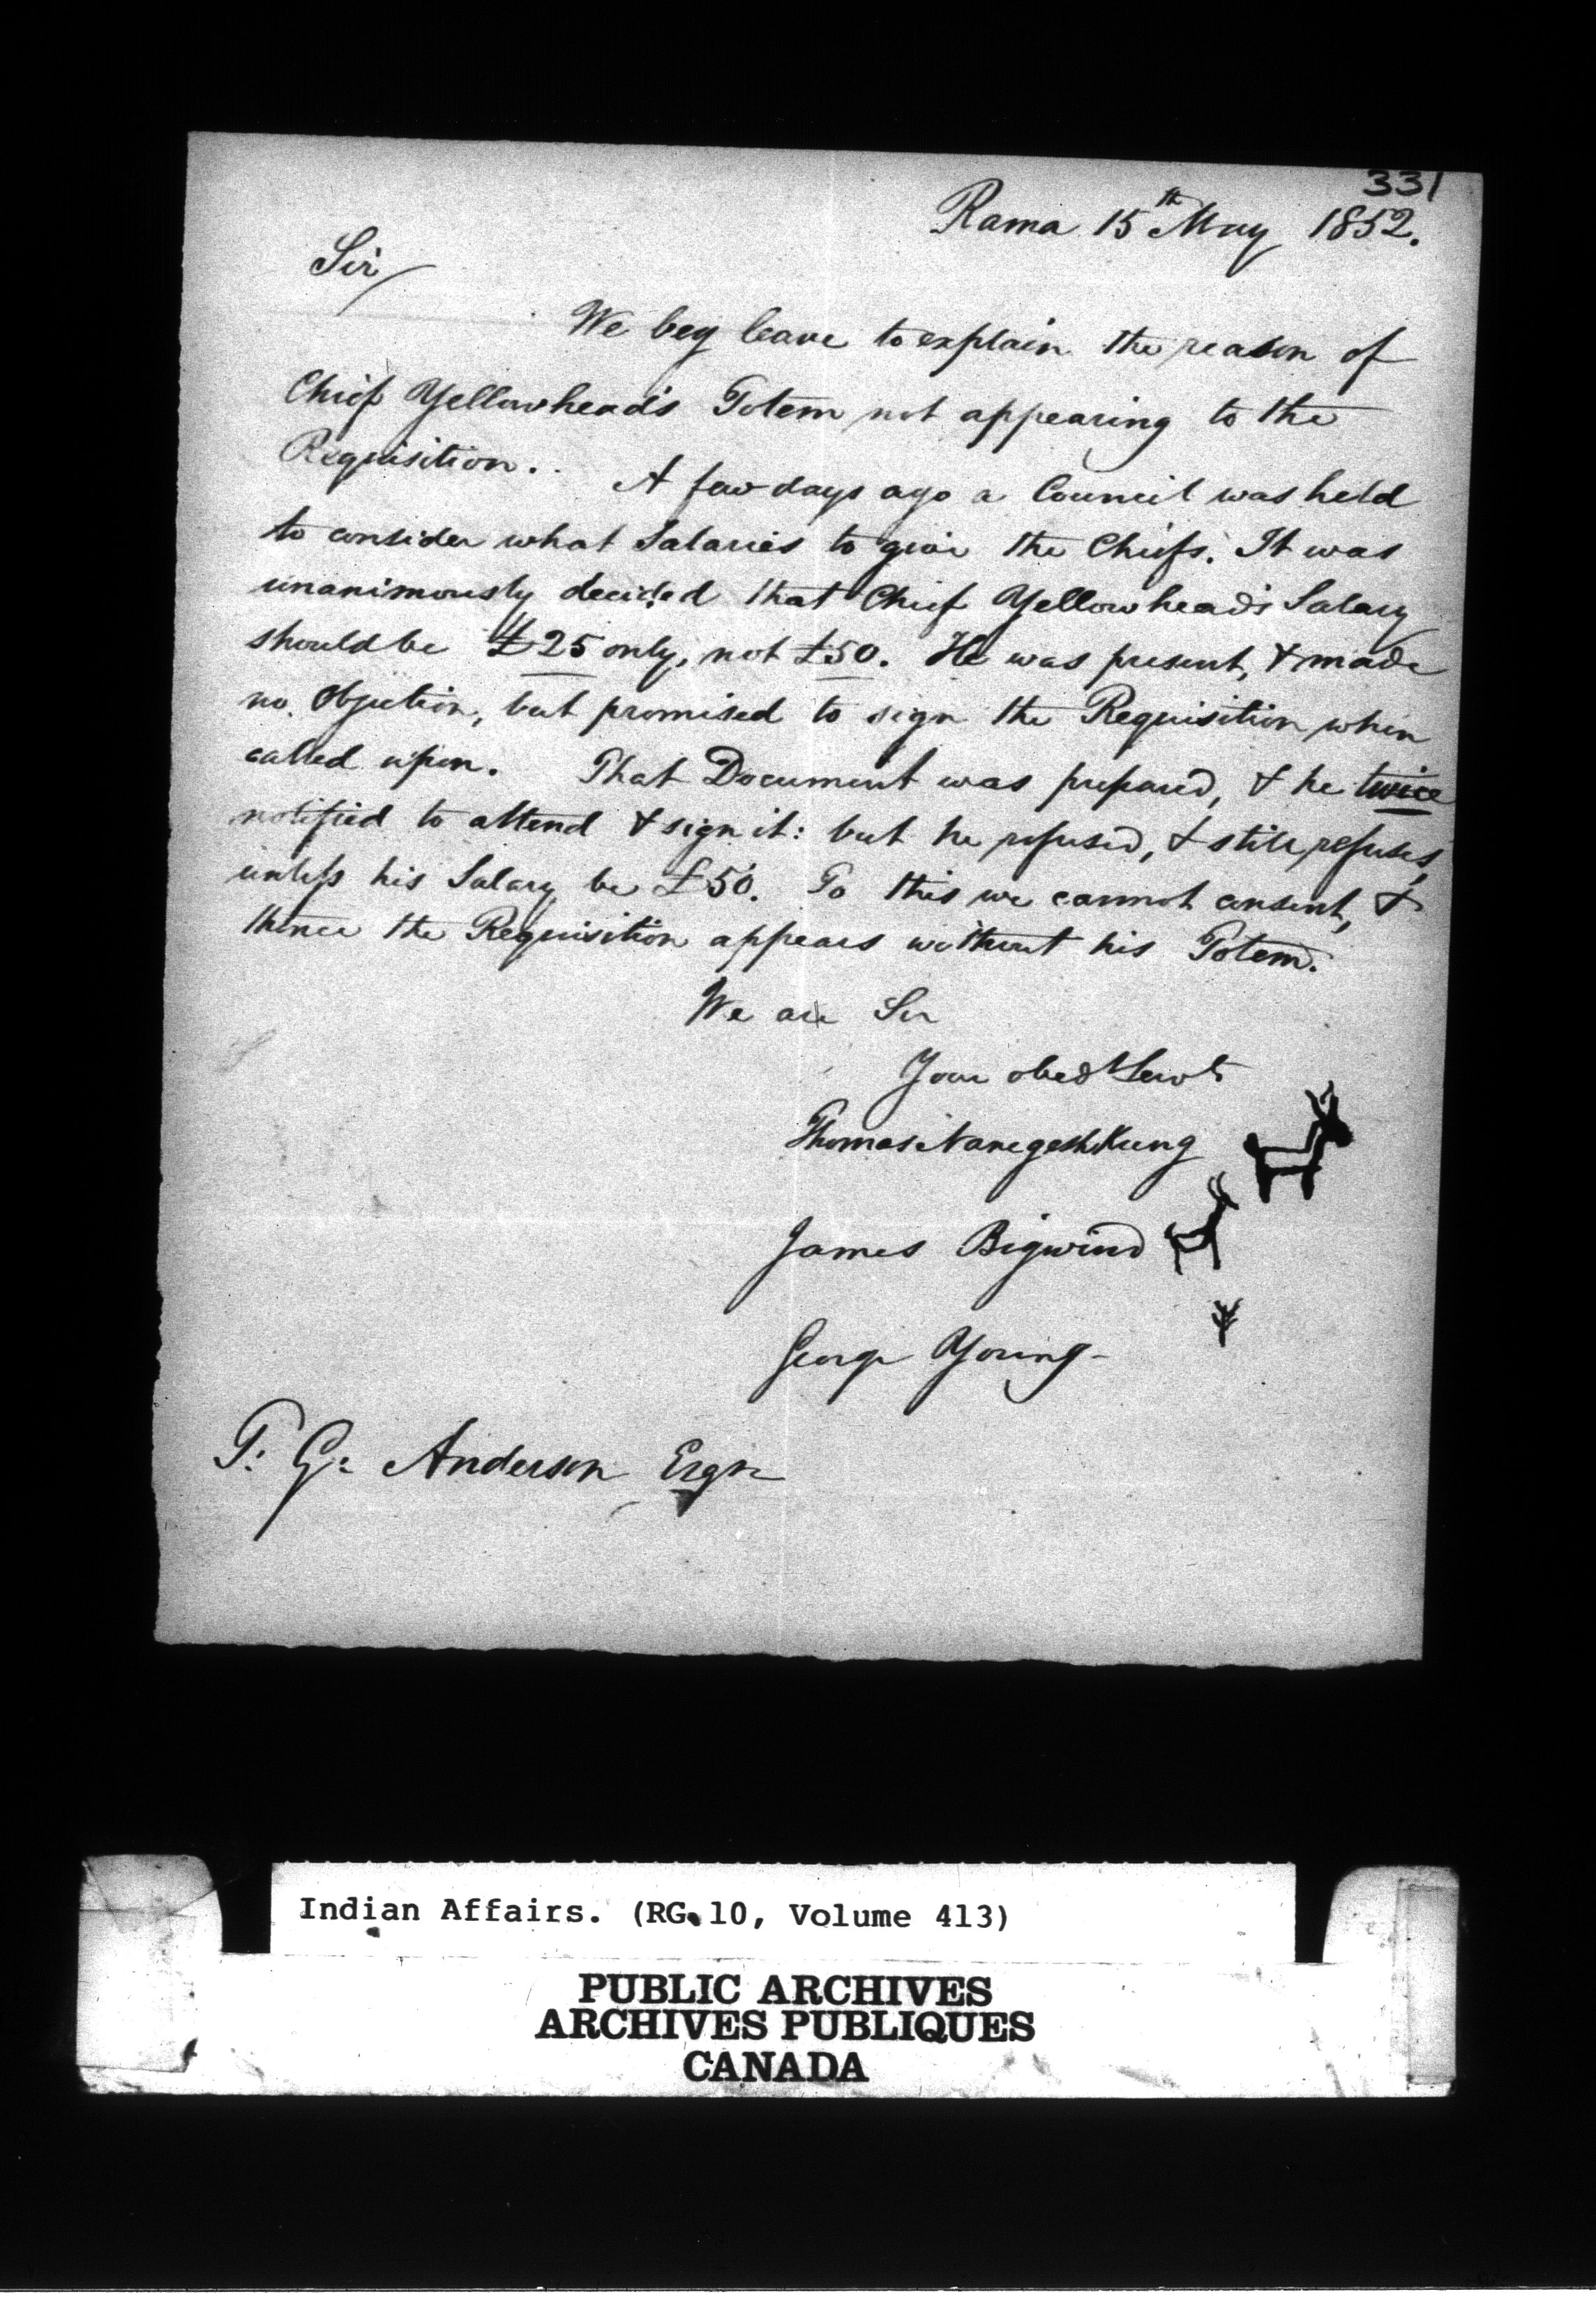 331
Rama 15th May 1852.
Sir
We beg leave to explain the reason of
Chief Yellowhead's Totem not appearing to the
Requisition. A few days ago a Council was held
to consider what Salaries to give the Chiefs. It was
unanimously decided that Chief Yellowhead's Salary
should be £25 only, not £50. He was present, & made
no Objection, but promised to sign the Requisition when
called upon. That Document was prepared, & he twice
notified to attend & sign it: but he refused, & still refuses,
unless his Salary be £50. To this we cannot consent, &
thence the Requisition appears without his Totem.
We are Sir
Your obedt Servts
Thomas Nanegeshkung
James Bigwind
George Young
T. G. Anderson Esqr
Indian Affairs. (RG 10, Volume 413)
PUBLIC ARCHIVES
ARCHIVES PUBLIQUES
CANADA